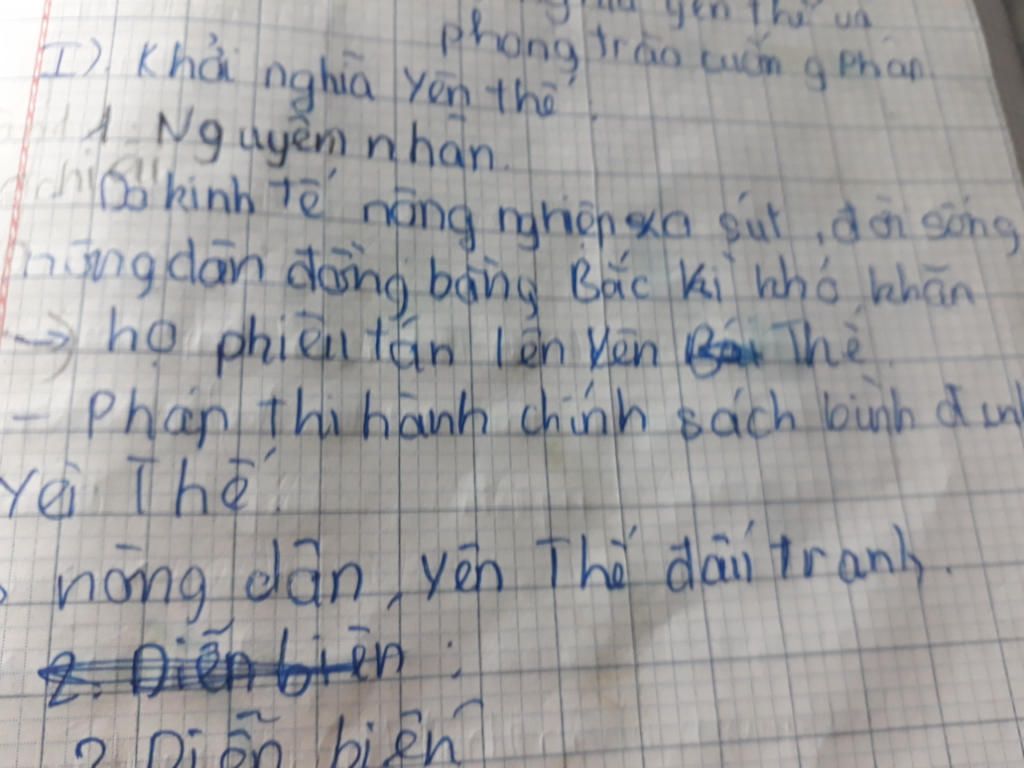 yên thế và
phong trào cuốn g phán
I) Khởi nghĩa Yên thế.
1. Nguyễm nhân.
Do kinh tế nông nghiệp sa sút, đời sống
nông dân đồng bằng Bắc kì khó khăn
→ họ phiêu tán lên Yên Thế.
- Pháp thi hành chính sách bình định
Yêi Thế.
nông dân, Yên Thế đấu tranh.
2. Diễn biên :
2 Diễn biến